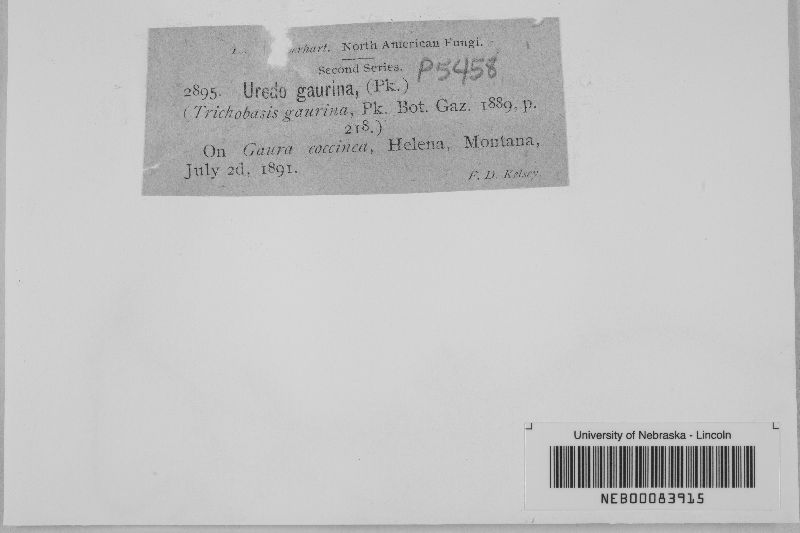 North American Fungi.
Second Series.
P5458
2895. Uredo gaurina, (Pk.)
(Trichobasis gaurina, Pk. Bot. Gaz. 1889, p.
218.)
On Gaura coccinea, Helena, Montana,
July 2d, 1891.
F. D. Kelsey
University of Nebraska - Lincoln
NEB00083915